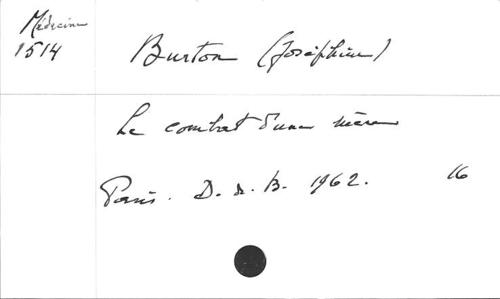 Médecine
1514
Burton (Joséphine)
Le combat d'une mère
Paris. D. d. B. 1962. 16